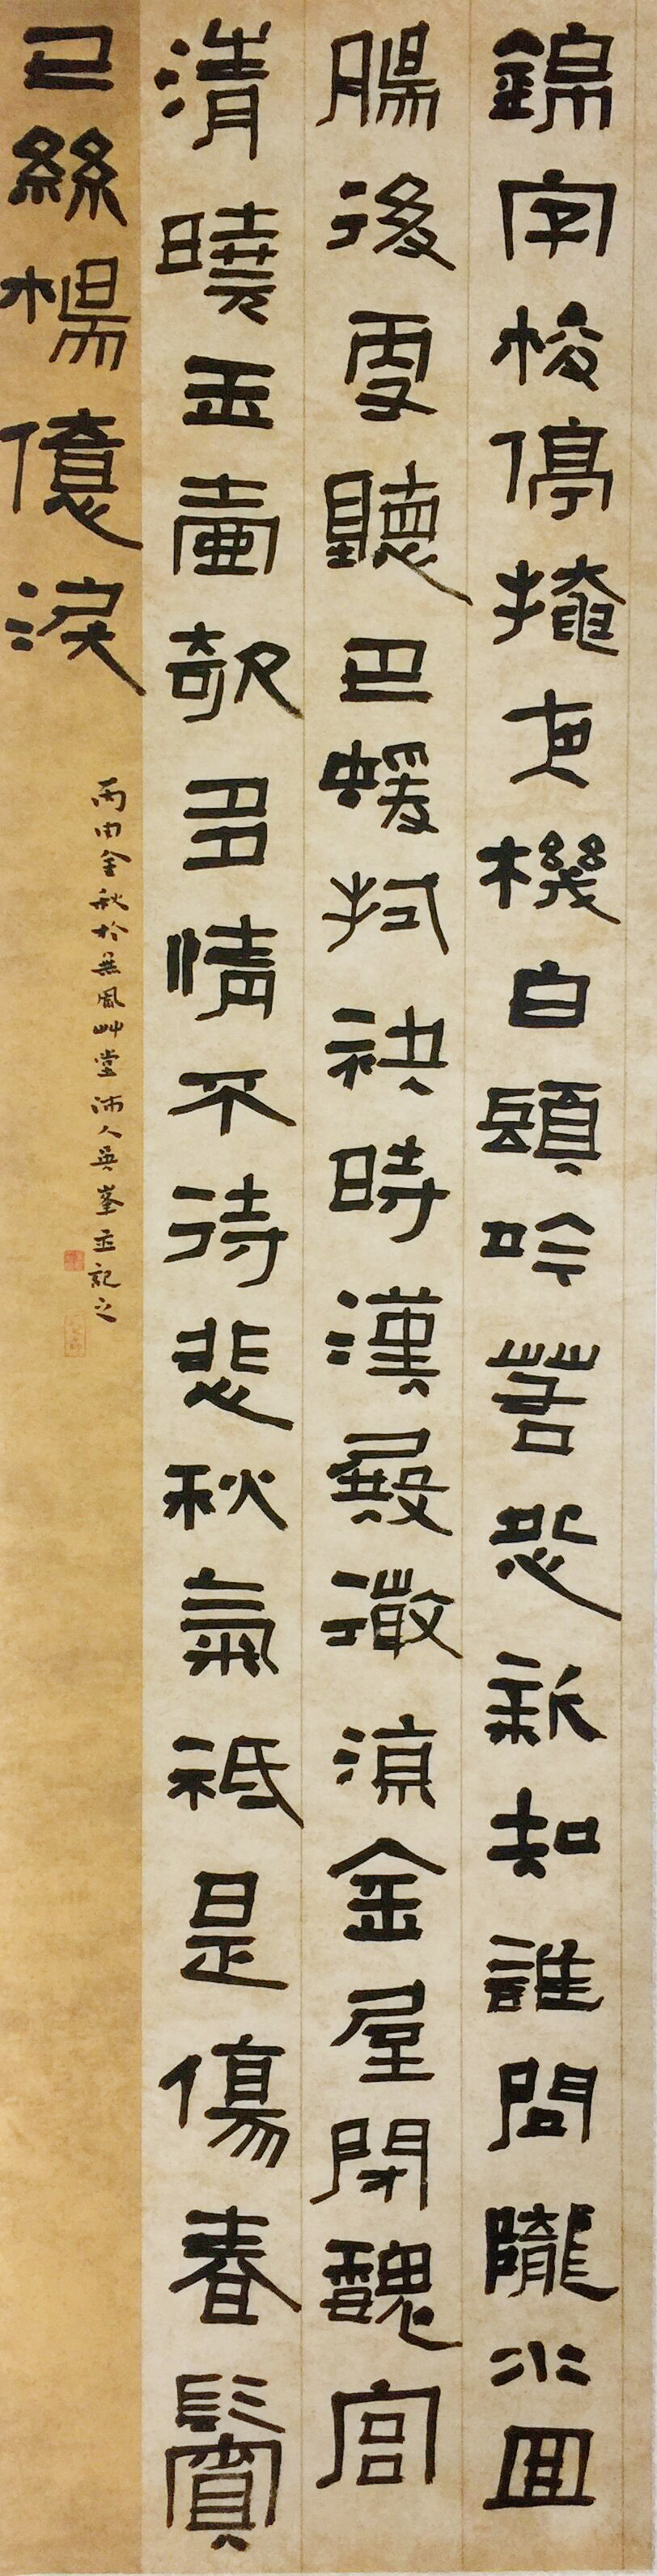 錦字梭停掩夜機白頭吟苦怨新知誰問隴水回
腸後更聽巴猨拭袂時漢殿微涼金屋閉魏宮
清曉玉壺欹多情不待悲秋氣祗是傷春鬢
已絲楊億淚
丙申金秋於無風艸堂沛人吳峯並記之